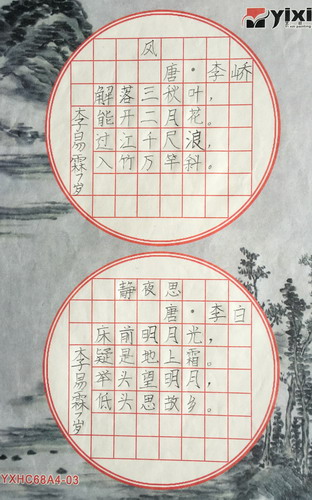 yixi
风
唐·李峤
解落三秋叶，
能开二月花。
过江千尺浪，
入竹万竿斜。
李易霖7岁
静夜思
唐·李白
床前明月光，
疑是地上霜。
举头望明月，
低头思故乡。
李易霖7岁
YXHC68A4-03